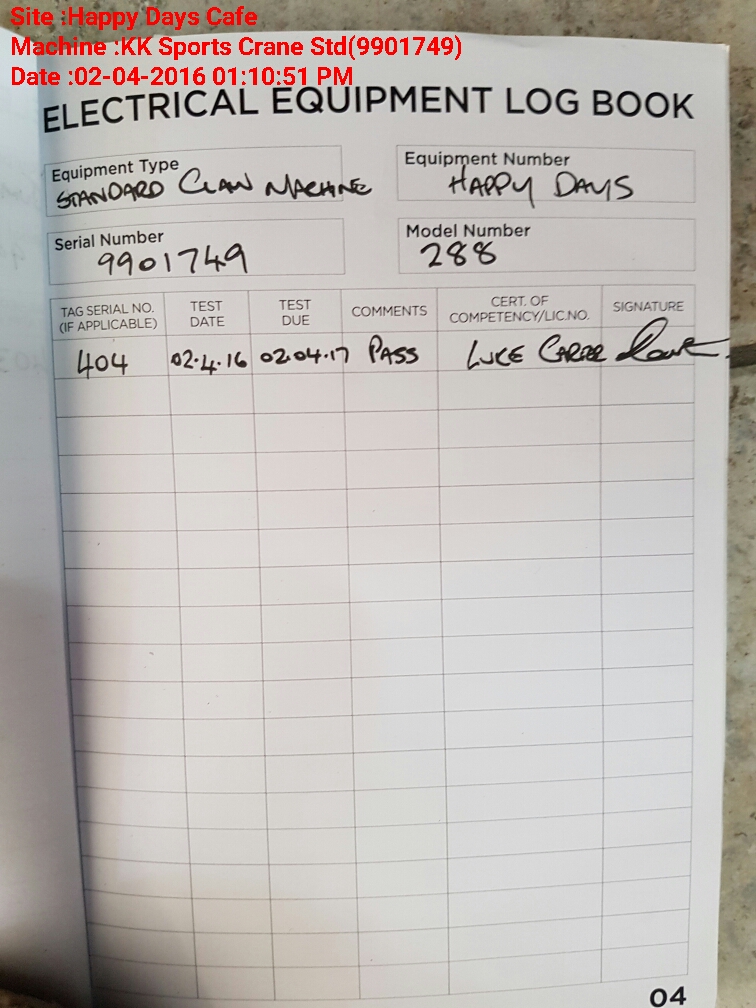 Site :Happy Days Cafe
Machine :KK Sports Crane Std(9901749)
Date :02-04-2016 01:10:51 PM
ELECTRICAL EQUIPMENT LOG BOOK
Equipment Type
STANDARD CLAW MACHINE
Equipment Number
HAPPY DAYS
Serial Number
9901749
Model Number
288
TAG SERIAL NO.
(IF APPLICABLE)
TEST
DATE
TEST
DUE
COMMENTS
CERT. OF
COMPETENCY/LIC.NO.
SIGNATURE
404 02.4.16 02.04.17 PASS LUKE
04